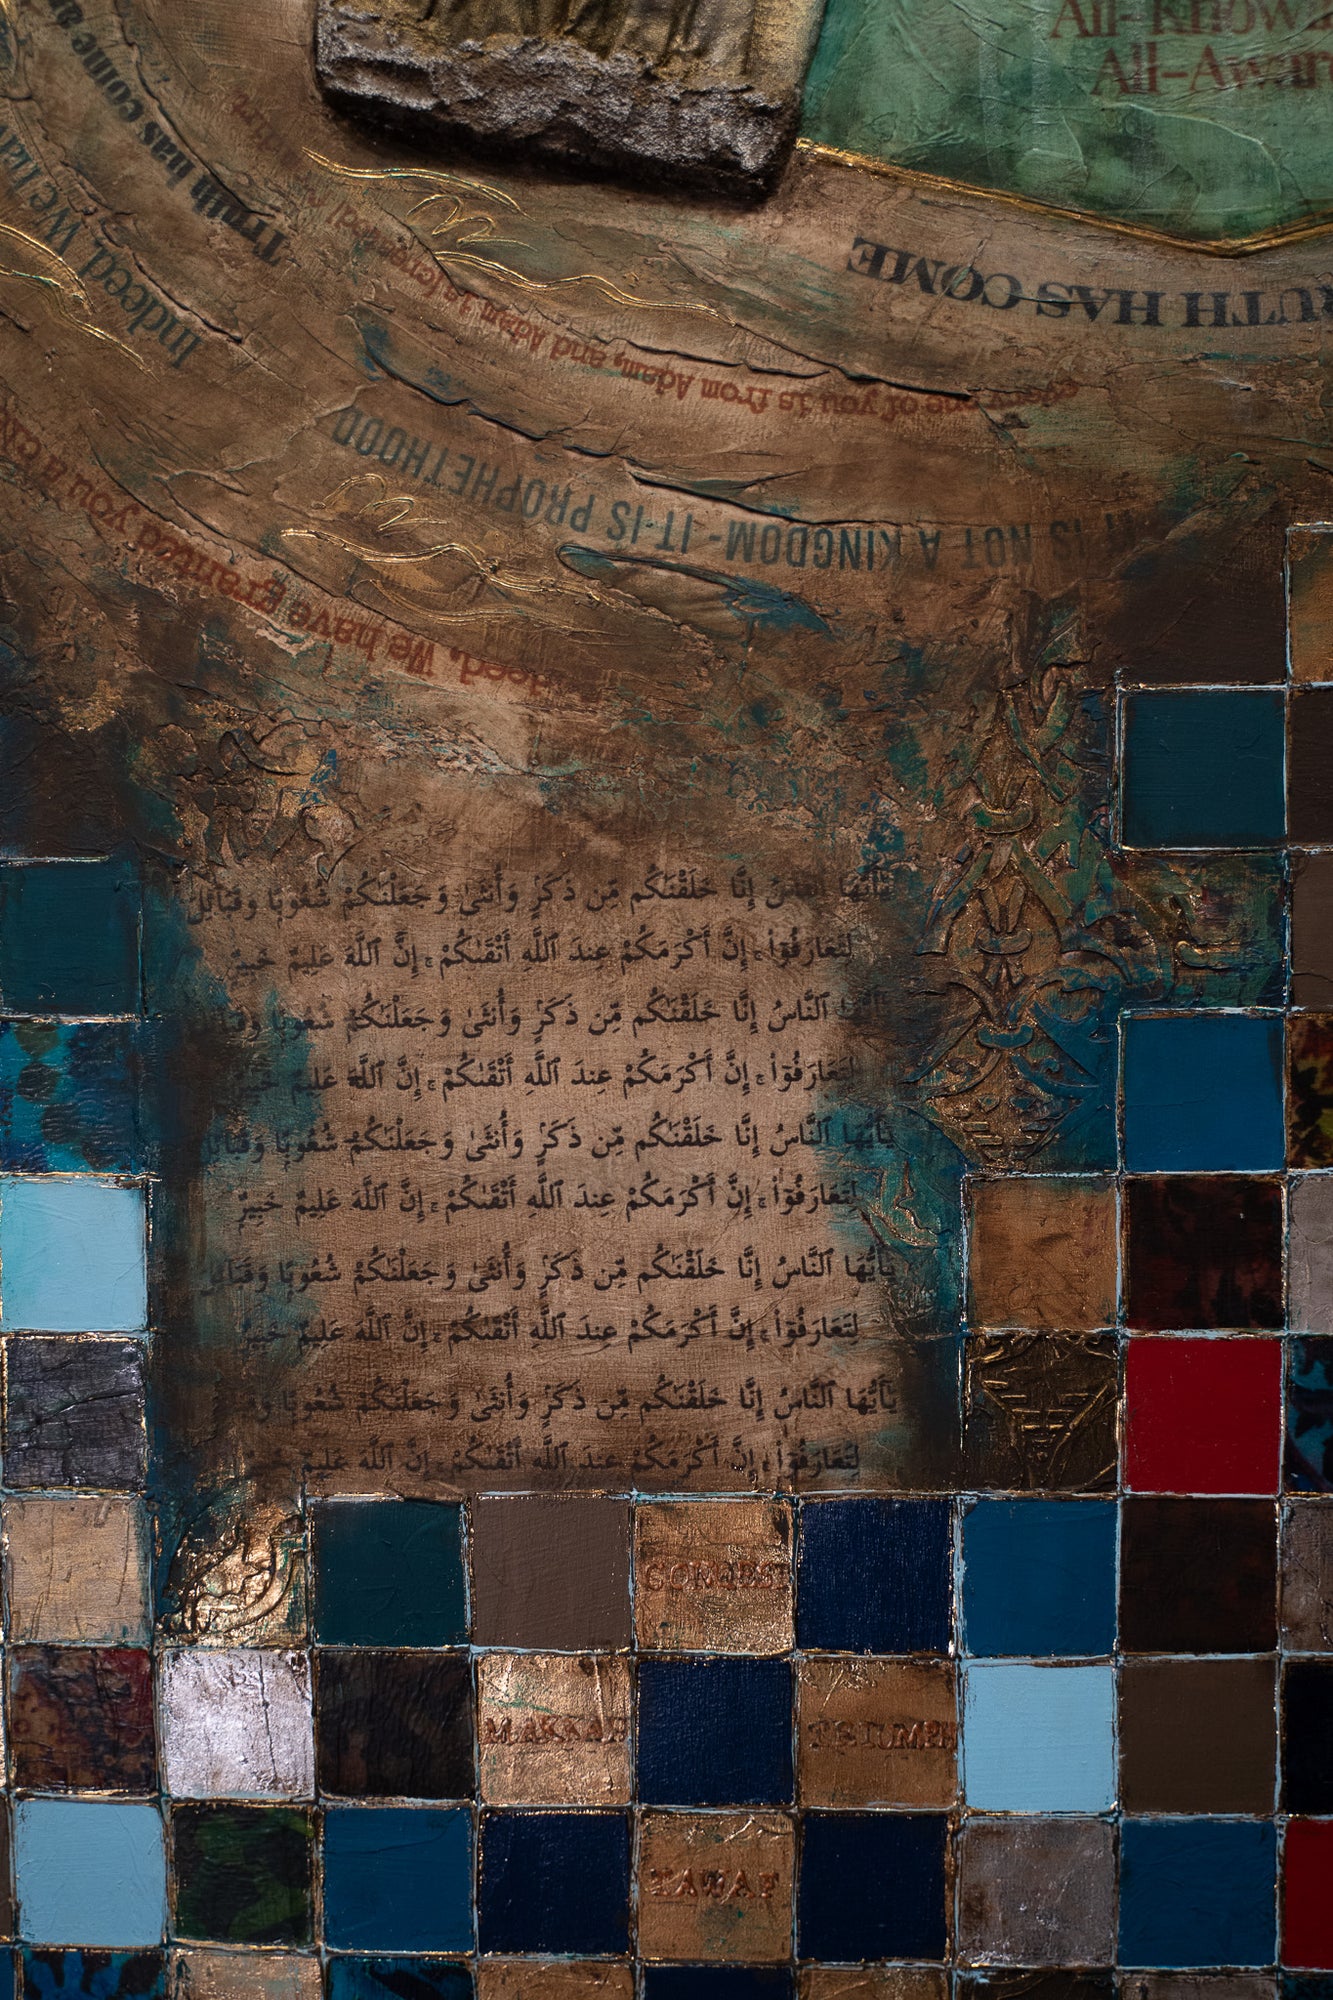 All-Know
All-Awar
Truth has come
Indeed, We have
RUTH HAS COME
every one of you is from Adam, and Adam is
IT IS NOT A KINGDOM - IT IS PROPHETHOOD
Indeed, We have granted you a
يَٰٓأَيُّهَا ٱلنَّاسُ إِنَّا خَلَقْنَٰكُم مِّن ذَكَرٍ وَأُنثَىٰ وَجَعَلْنَٰكُمْ شُعُوبًا وَقَبَآئِلَ
لِتَعَارَفُوٓا۟ ۚ إِنَّ أَكْرَمَكُمْ عِندَ ٱللَّهِ أَتْقَىٰكُمْ ۚ إِنَّ ٱللَّهَ عَلِيمٌ خَبِيرٌ
يَٰٓأَيُّهَا ٱلنَّاسُ إِنَّا خَلَقْنَٰكُم مِّن ذَكَرٍ وَأُنثَىٰ وَجَعَلْنَٰكُمْ شُعُوبًا وَقَبَآئِلَ
لِتَعَارَفُوٓا۟ ۚ إِنَّ أَكْرَمَكُمْ عِندَ ٱللَّهِ أَتْقَىٰكُمْ ۚ إِنَّ ٱللَّهَ عَلِيمٌ خَبِيرٌ
يَٰٓأَيُّهَا ٱلنَّاسُ إِنَّا خَلَقْنَٰكُم مِّن ذَكَرٍ وَأُنثَىٰ وَجَعَلْنَٰكُمْ شُعُوبًا وَقَبَآئِلَ
لِتَعَارَفُوٓا۟ ۚ إِنَّ أَكْرَمَكُمْ عِندَ ٱللَّهِ أَتْقَىٰكُمْ ۚ إِنَّ ٱللَّهَ عَلِيمٌ خَبِيرٌ
يَٰٓأَيُّهَا ٱلنَّاسُ إِنَّا خَلَقْنَٰكُم مِّن ذَكَرٍ وَأُنثَىٰ وَجَعَلْنَٰكُمْ شُعُوبًا وَقَبَآئِلَ
لِتَعَارَفُوٓا۟ ۚ إِنَّ أَكْرَمَكُمْ عِندَ ٱللَّهِ أَتْقَىٰكُمْ ۚ إِنَّ ٱللَّهَ عَلِيمٌ خَبِيرٌ
يَٰٓأَيُّهَا ٱلنَّاسُ إِنَّا خَلَقْنَٰكُم مِّن ذَكَرٍ وَأُنثَىٰ وَجَعَلْنَٰكُمْ شُعُوبًا
لِتَعَارَفُوٓا۟ ۚ إِنَّ أَكْرَمَكُمْ عِندَ ٱللَّهِ أَتْقَىٰكُمْ ۚ إِنَّ ٱللَّهَ عَلِيمٌ خَبِيرٌ
CONQUEST
MAKKAH
TRIUMPH
TAWAF